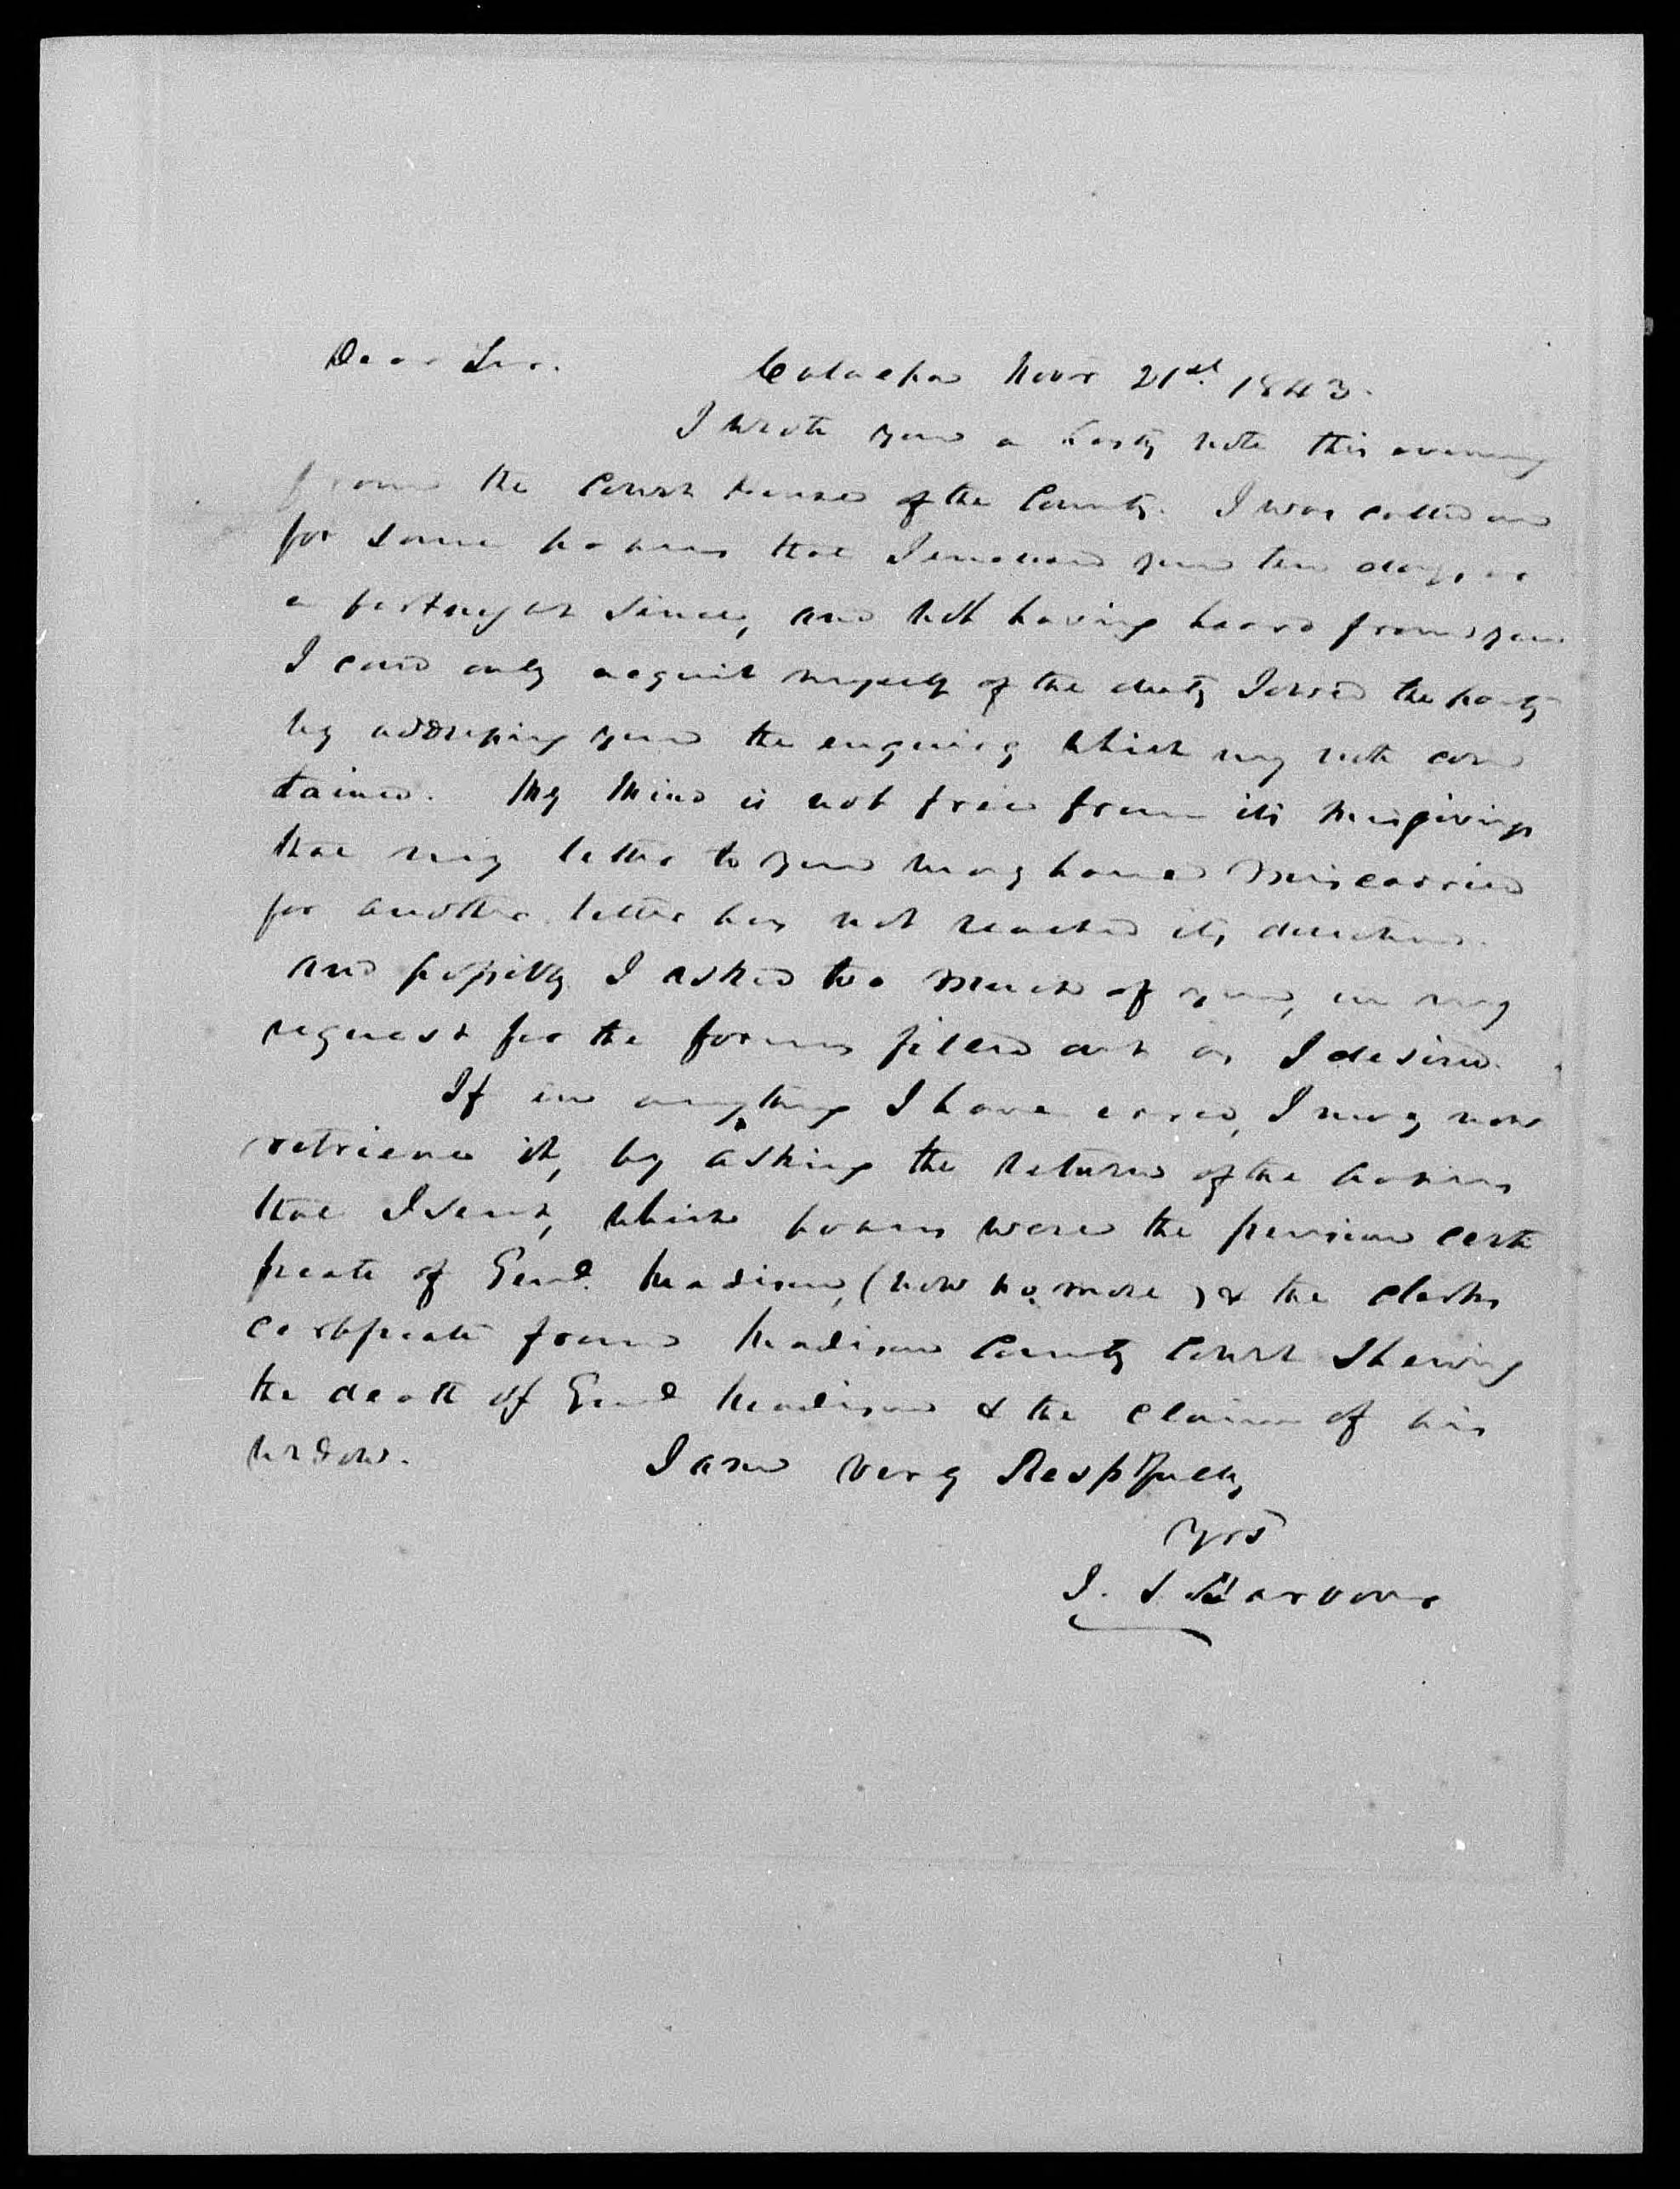 Dear Sir. Catalpa Novr 21st 1843.
I wrote you a hasty note this evening
from the Court House of the County. I was called on
for some papers that I enclosed you ten days, or
a fortnight since, and not having heard from you
I coud only acquit myself of the duty I owed the party
by addressing you the enquiry which my note con
tained. My Mind is not free from its misgivings
that my letter to you may have miscarried
for another letter has not reached its direction.
and possibly I asked too much of you, in my
request for the forms filled out as I desired.
If in anything I have erred, I may now
retrieve it, by asking the return of the papers
that I sent, which papers were the pension certi
ficate of Genl. Madison, (now no more) & the clerks
certificate from Madison County Court shewing
the death of Genl Madison & the claim of his
widow. I am very Respfully
Yrs
J. S Barbour